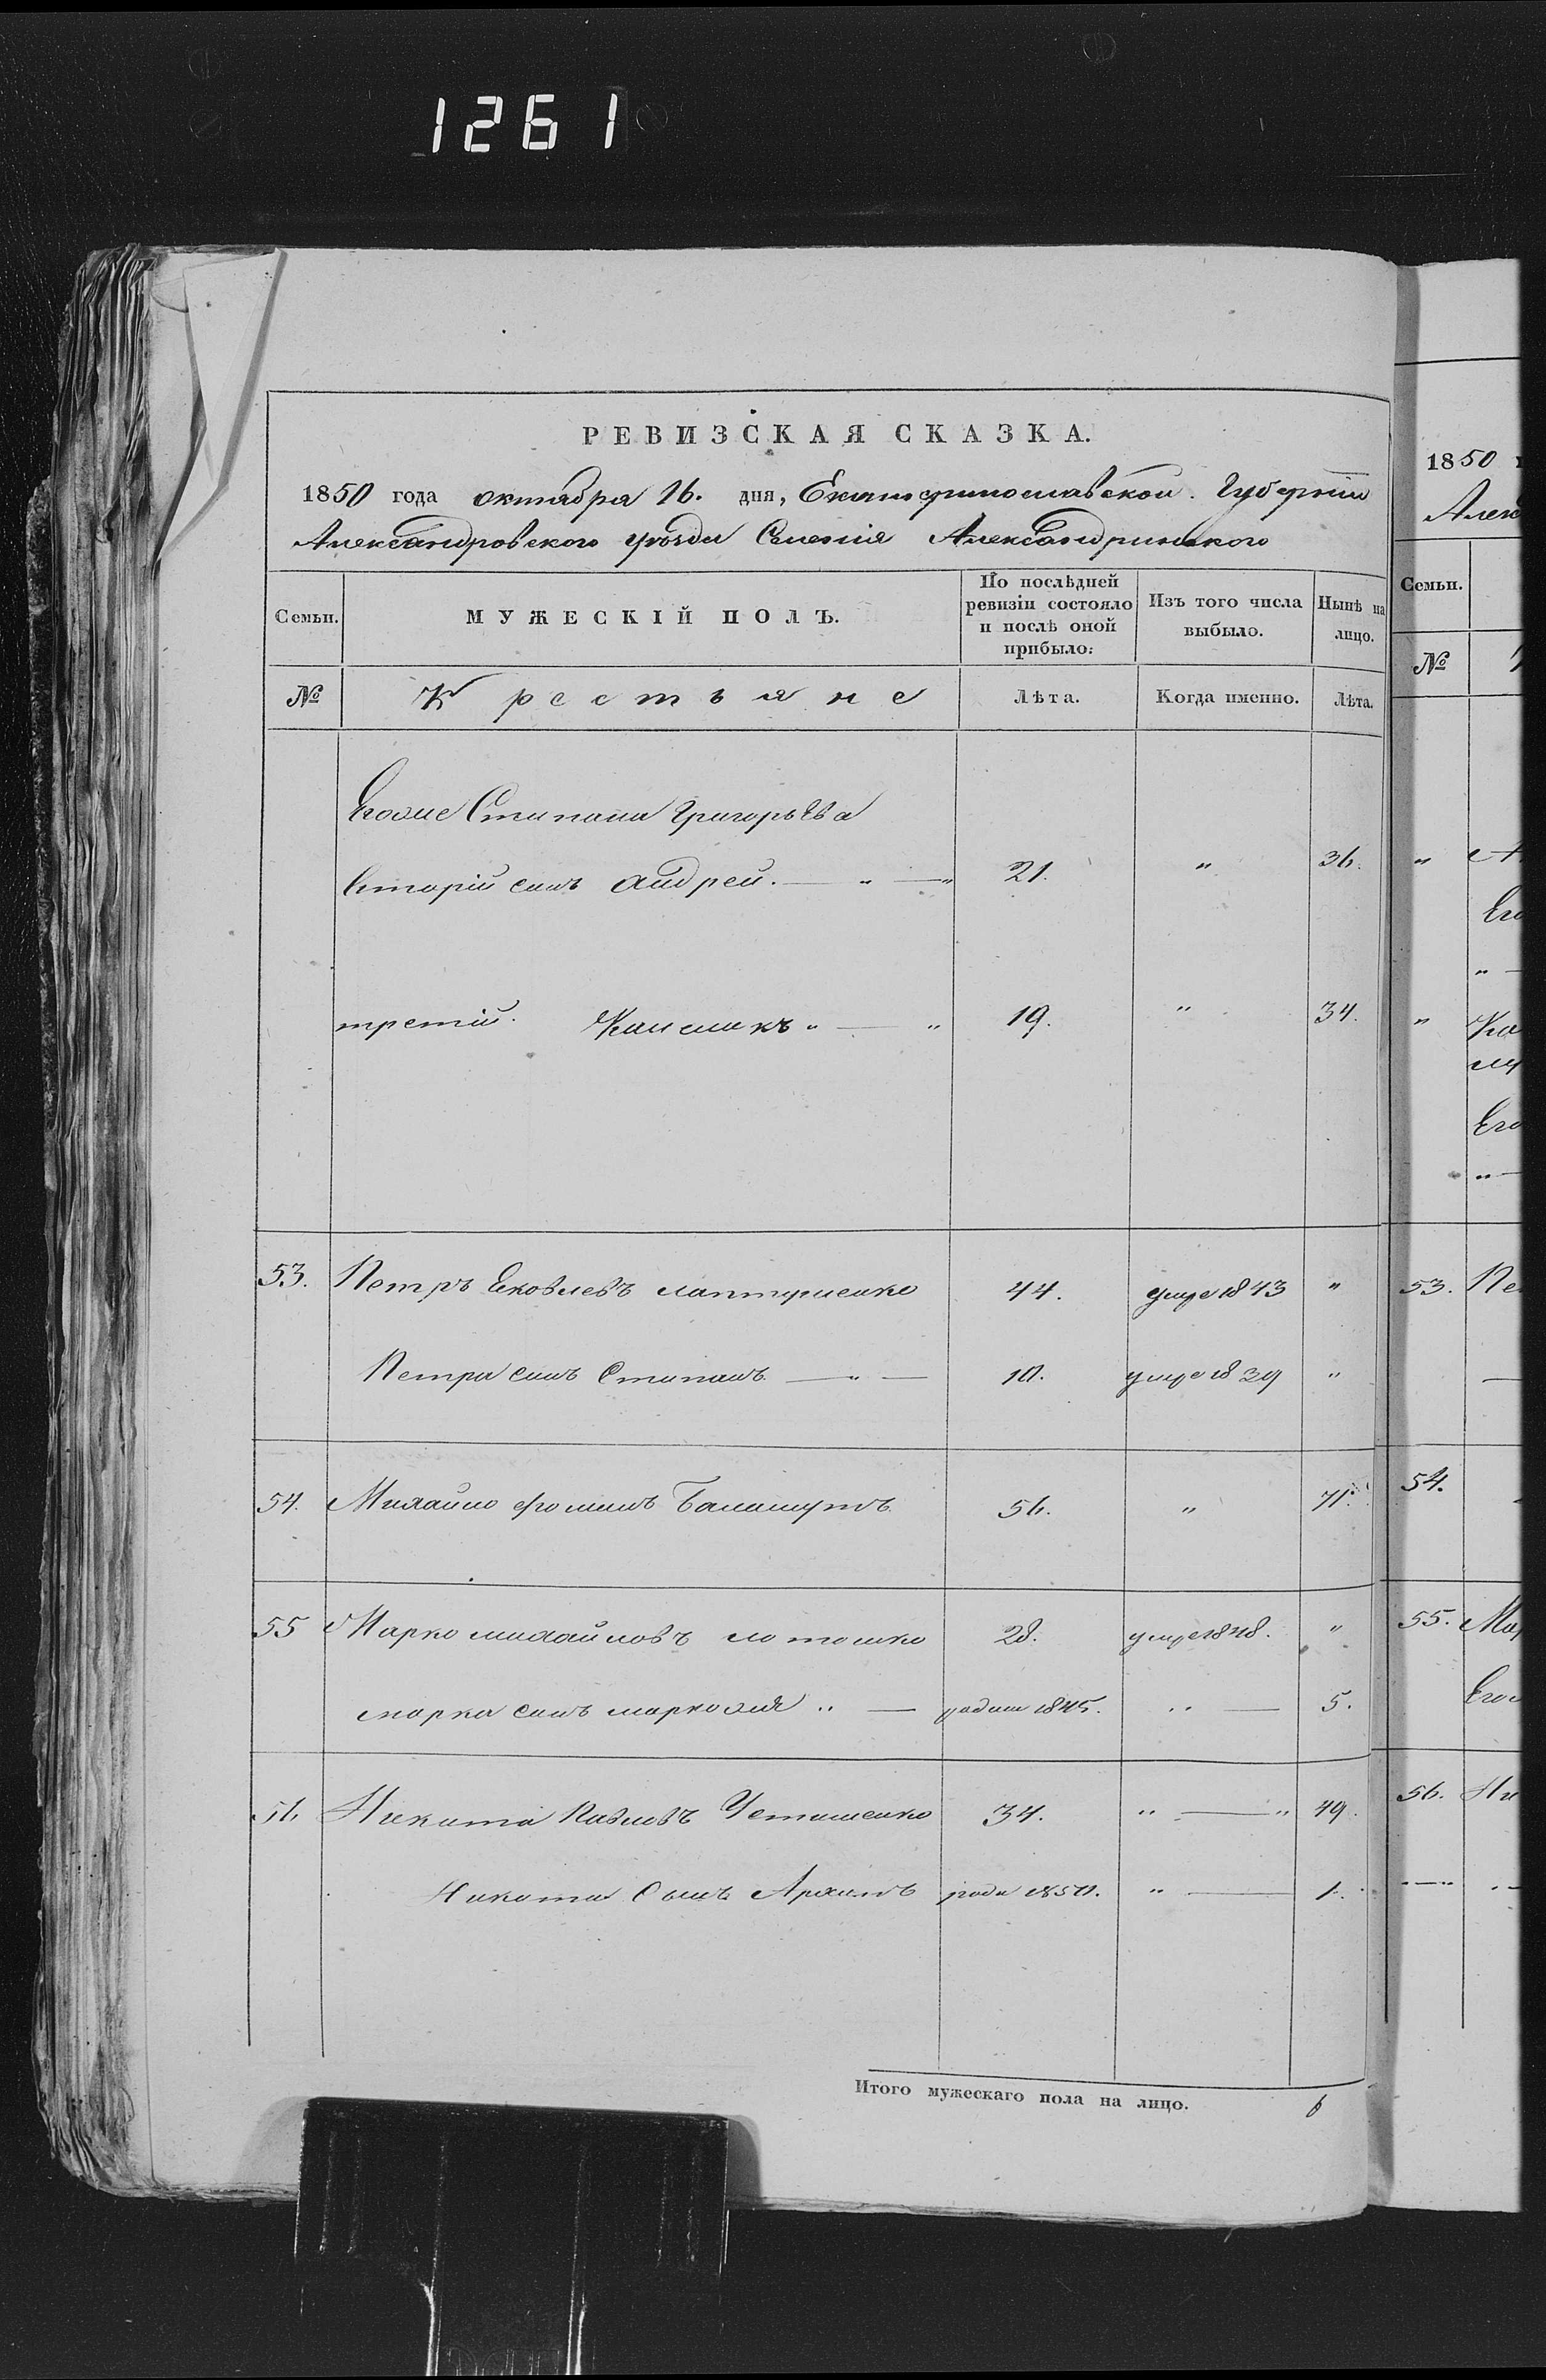 1261
РЕВИЗСКАЯ СКАЗКА.
1850 года октября 16. дня, Екатеринославской Губерніи
Александровского уѣзда Селенія Александринского
Семьи. МУЖЕСКІЙ ПОЛЪ. По послѣдней ревизіи состояло и послѣ оной прибыло: Изъ того числа выбыло. Нынѣ на лицо.
№ Крестьяне Лѣта. Когда именно. Лѣта.
Стипана Григорьева
вторій синъ Андрей. — " — " 21. " 36.
третій. " — " 19. " 34.
53. Петръ Яковлевъ 44. умре 1843 "
Петра синъ Стипанъ — " — 10. умре 1839 "
54. Михайло Фоминъ Баламутъ 56. " 71.
55 Марко михайловъ 28. умре 1848. "
марка синъ " — родил 1845. " — 5.
56 Никита Павловъ 34. " — " 49.
Никоти Сынъ Архипъ роди 1850. " — 1.
Итого мужескаго пола на лицо. 6
1850
Алек
Семьи.
№
Его
Его
53. Пе
54.
55. Мар
Его
56. Ни